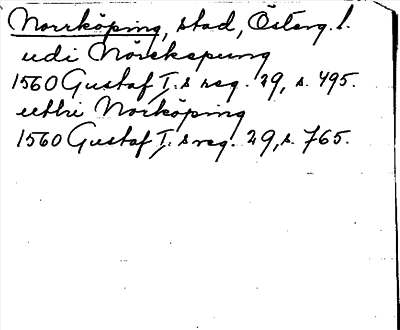 Norrköping, stad, Österg. l.
udi Nörckepung
1560 Gustaf I:s reg. 29, s. 495.
utthi Norköping
1560 Gustaf I:s reg. 29, s. 765.